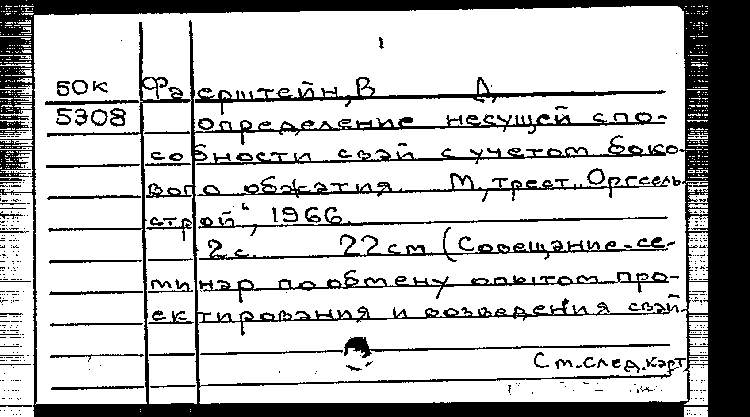 1
50к Фаерштейн, В Д
5308 Определение несущей спо-
собности свай с учетом боко-
вого обжатия. М, трест „Оргсель-
строй“, 1966.
2 с. 22 см (Совещание-се-
минар по обмену опытом про-
ектирования и возведения свай-
См. след. карт